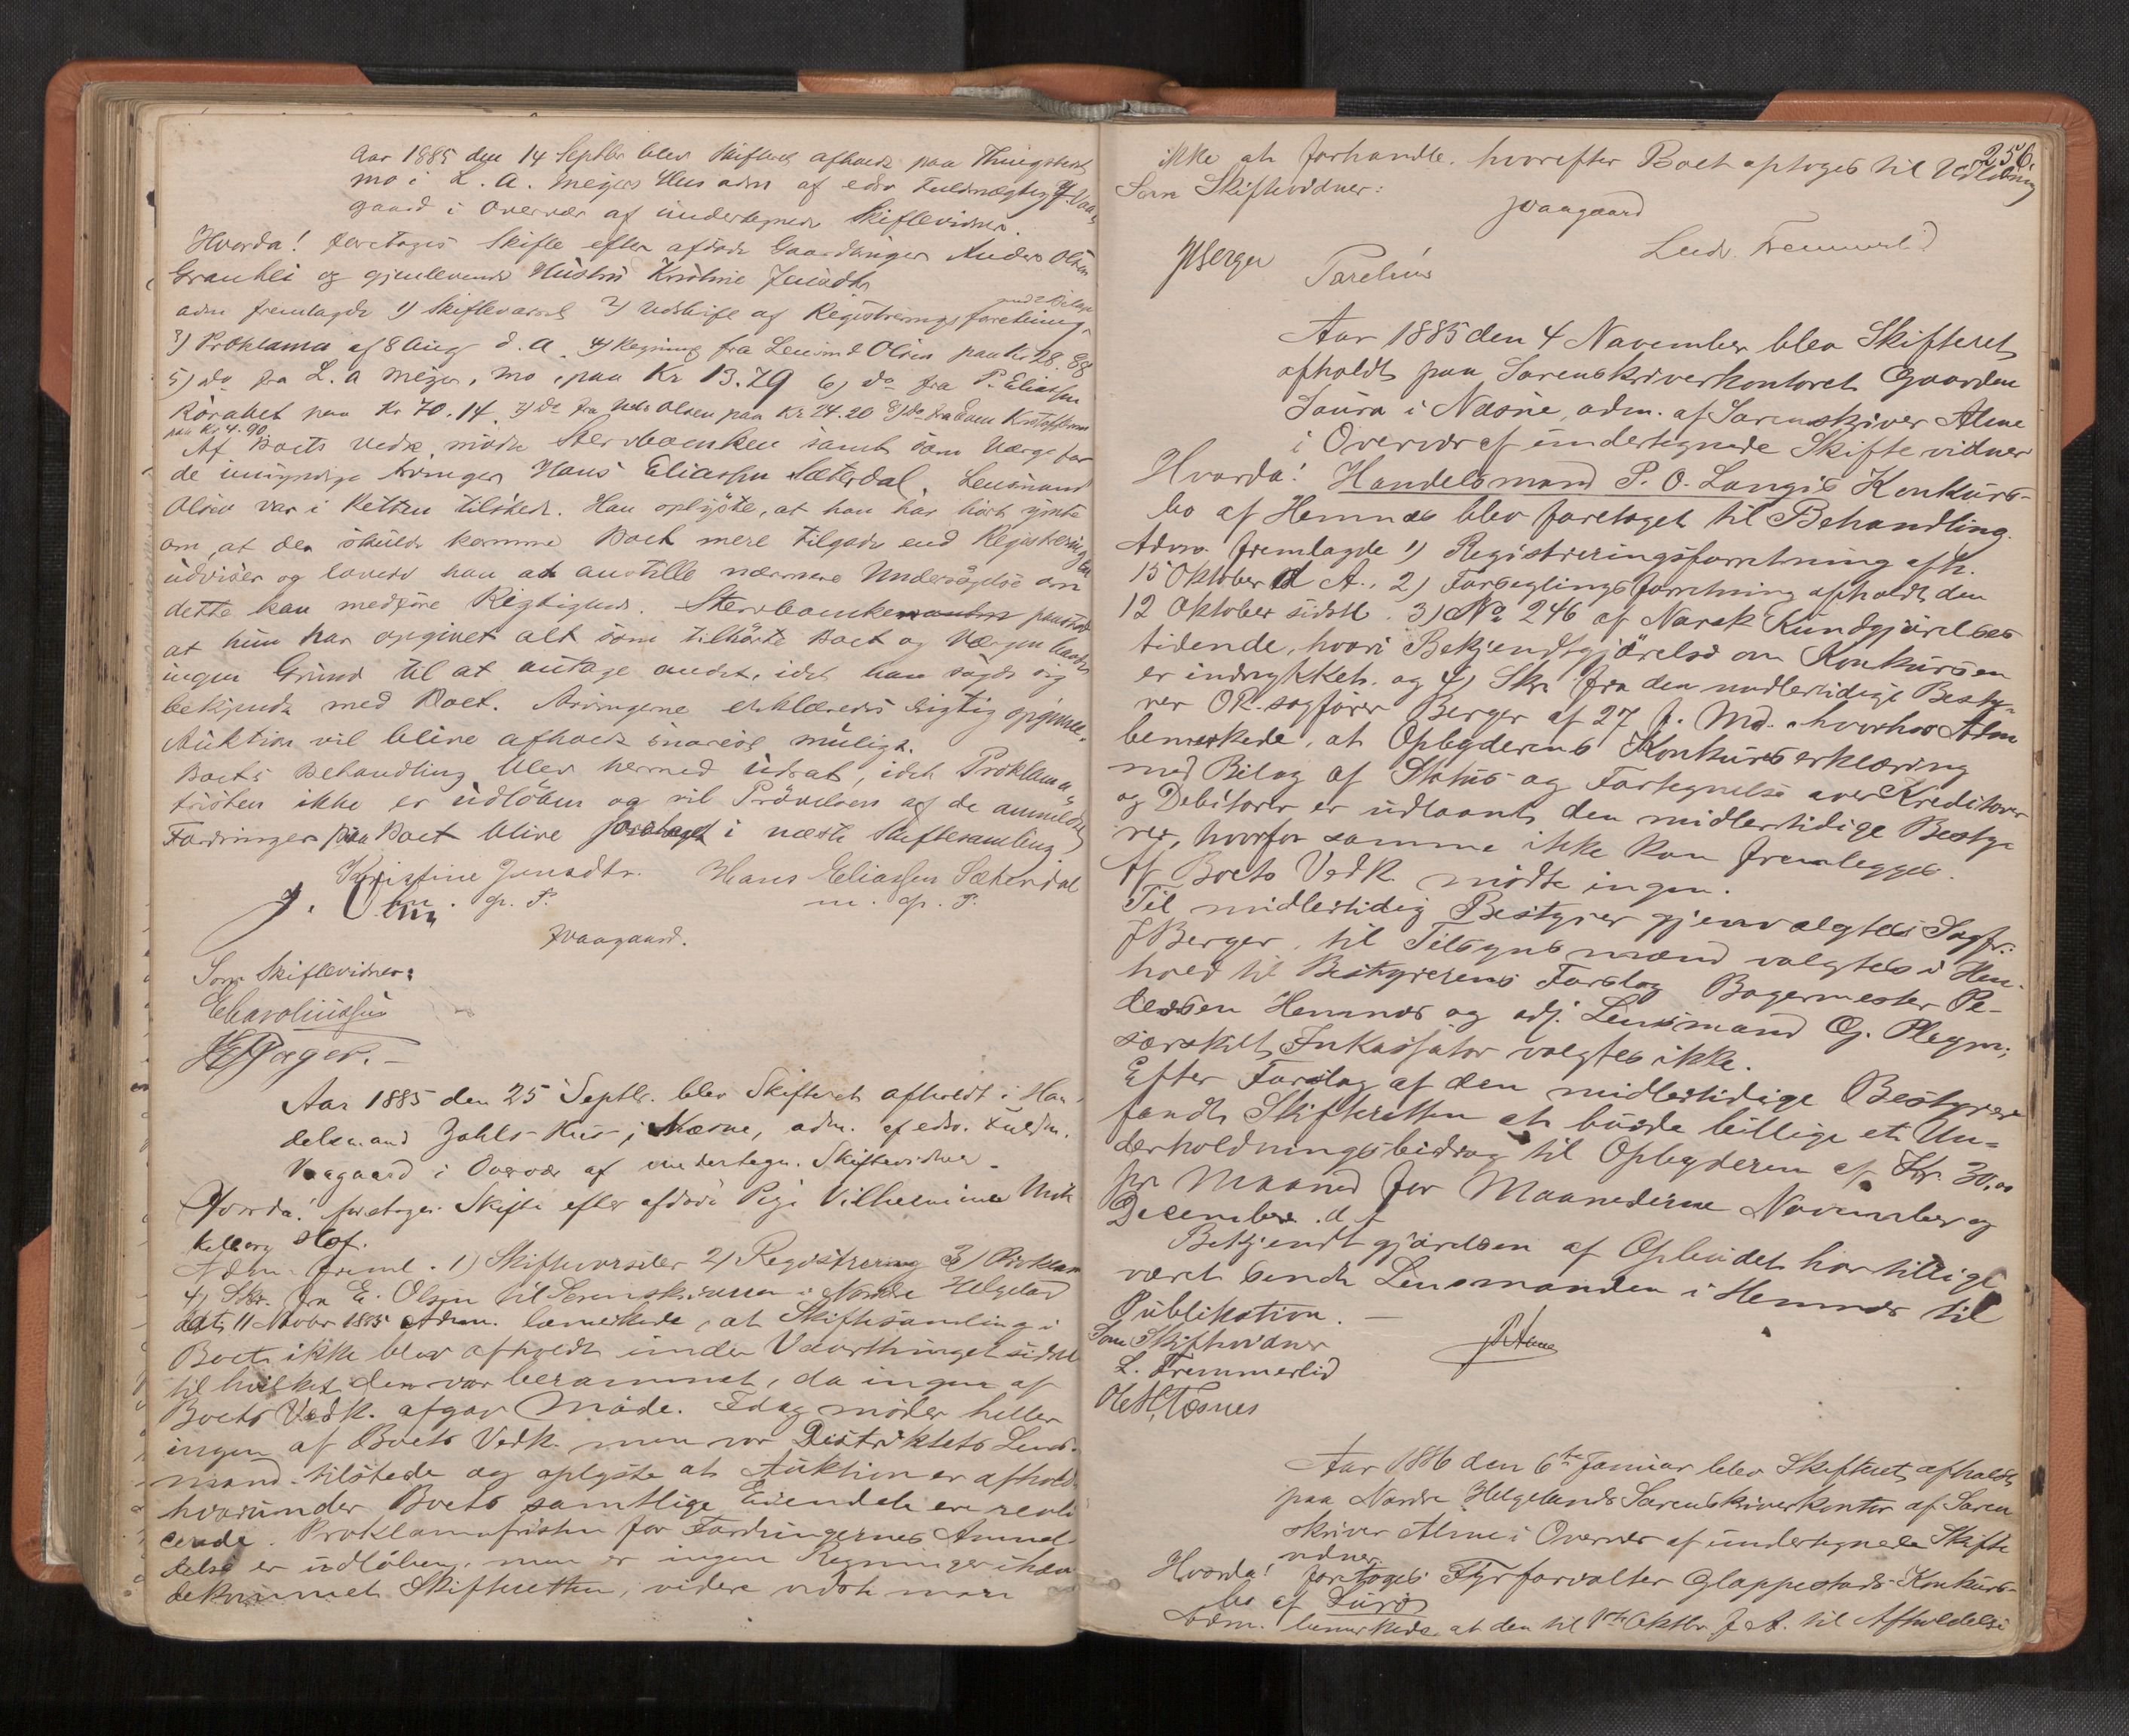 Aar 1885 den 14 Septbr blev Skifteret afholdt paa Thingstedet
Mo i L. A. Meyers Hus adm af edsv Fuldmægtig J. Vaa-
gaard i Overvær af undertegnede Skiftevidner.
Hvorda! foretoges Skifte efter afdøde Gaardbruger Anders Olsen
Granhei og gjenlevende Hustru Kristine Jensdtr
adm fremlagde 1) Skiftevarsel 2) Udskrift af Registreringsforretning
med Bilage
3) Proklama af 8 Aug d. A. 4) Regning fra Lensmd Olsen paa Kr 28.88
5) do fra L. A Meyer, Mo, paa Kr 13.79 6) do fra P. Eliassen
paa Kr 70.14. 7) do fra Olsen paa Kr 24.20 8) do fra
paa Kr 4.90.
Af Boets Vedk. mødte Stervboenken samt som Værge for
de umyndige Arvinger Hans Eliassen Sæterdal. Lensmand
Olsen var i Retten tilstede. Han oplyste, at han har hørt ymte
om, at der skulde komme Boet mere tilgode end Registreringen
udviser og lovede han at anstille nærmere Undersøgelse om
dette kan medføre Rigtighed. Stervboenken paastod
at hun har opgivet alt som tilhørte Boet og Værgen havde
ingen Grund til at antage andet, idet han sagde sig
bekjendt med Boet. Arvingerne erklæredes rigtig opgivne.
Auktion vil blive afholdt snarest muligt.
Boets Behandling blev hermed udsat, idet Proklama-
fristen ikke er udløben og vil Prøvelsen af de anmeldte
Fordringer paa Boet blive foretaget i næste Skiftesamling
Kristine Jensdtr. Hans Eliassen Sæterdal
m. p. P. m. p. P.
JVaagaard.
Som Skiftevidner:
Aar 1885 den 25 Septbr. blev Skifteret afholdt i Han-
delsmand Zahls Hus i Næsne, adm. af edsv. Fuldm.
Vaagaard i Overvær af undertegn. Skiftevidner.
Hvorda! foretoges Skifte efter afdøde Pige Vilhelmine Mik
kelborg Hof.
Adm. freml. 1) Skiftevarsler 2) Registrering 3) Proklam
4) Skr. fra E. Olsen til Sorenskriveren i Nordre Helgeland
dat. 11 1885 Adm. bemerkede, at Skiftesamling i
Boet ikke blev afholdt under Vaarthinget sidstl
til hvilket den var berammet, da ingen af
Boets Vedk. afgav Møde. Idag møder heller
ingen af Boets Vedk. men var Distriktets Lens-
mand tilstede og oplyste at Auktion er afholdt
hvorunder Boets samtlige Eiendele ere reali
serede. Proklamafristen for Fordringernes Anmel
delse er udløben, men er ingen Regninger ihæn
dekommet Skifteretten, videre vidste man
256.
ikke at forhandle. hvorefter Boet optoges til Udlodning
Som Skiftevidner:
JVaagaard
Ludv. Fremmerlid
JBerger
Aar 1885 den 4 November blev Skifteret
afholdt paa Sorenskriverkontoret Gaarden
Saura i Næsne, adm. af Sorenskriver Alme
i Overvær af undertegnede Skiftevidner
Hvorda! Handelsmand P. O. Langis Konkurs-
bo af Hemnes blev foretaget til Behandling.
Adm. fremlagde 1) Registreringsforretning afh.
15 Oktober d. A., 2) Forseglingsforretning afholdt den
12 Oktober sidstl. 3) No 246 af Norsk Kundgjørelses
tidende, hvori Bekjendtgjørelse om Konkursen
er indrykket. og 4) Skr. fra den midlertidige Besty-
rer OR.sagfører Berger af 27 f. Md. hvorhos Adm
bemerkede, at Opbyderens Konkurserklæring
med Bilag af Status og Fortegnelse over Kreditorer
og Debitorer er udlaant den midlertidige Besty
rer, hvorfor samme ikke kan fremlegges.
Af Boets Vedk. mødte ingen.
Til midlertidig Bestyrer gjenvalgtes Sagfr:
JBerger, til Tilsynsmænd valgtes i Hen-
hold til Bestyrerens Forslag Bagermester Pe-
dersen Hemnes og adj. Lensmand O. J. Plegm;
særskilt Inkassator valgtes ikke.
Efter Forslag af den midlertidige Bestyrer
fandt Skifteretten at burde billige et Un-
derholdningsbidrag til Opbyderen af Kr. 30,00
pr Maaned for Maanederne November og
December d. A
Bekjendtgjørelsen af Opbudet har tillige
været sendt Lensmanden i Hemnes til
Publikation. —
Som Skiftevidner
L. Fremmerlid
Alme
Aar 1886 den 6te Januar blev Skifteret afholdt
paa Nordre Helgelands Sorenskriverkontor af Soren
skriver Alme i Overvær af undertegnede Skifte
vidner.
Hvorda! foretoges Fyrforvalter Glappestads Konkurs-
bo af Lurø
Adm. bemerkede at den til Oktbr f. A. til Afholdelse